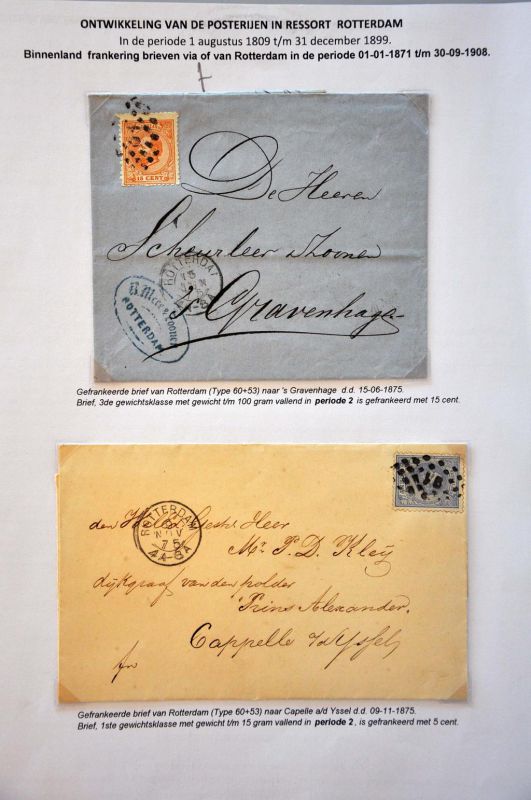 ONTWIKKELING VAN DE POSTERIJEN IN RESSORT ROTTERDAM
In de periode 1 augustus 1809 t/m 31 december 1899.
Binnenland frankering brieven via of van Rotterdam in de periode 01-01-1871 t/m 30-09-1908.
15 CENT
De Heeren
Scheurleer & Zoonen
ROTTERDAM
15
'sGravenhage
ZOONEN
ROTTERDAM
Gefrankeerde brief van Rotterdam (Type 60+53) naar 's Gravenhage d.d. 15-06-1875.
Brief, 3de gewichtsklasse met gewicht t/m 100 gram vallend in periode 2 is gefrankeerd met 15 cent.
91
ROTTERDAM
NOV
75
4A-8A
den Heer
Mr P. D. Kleij
dijkgraaf van den polder
Prins Alexander.
Cappelle a/d Yssel
Gefrankeerde brief van Rotterdam (Type 60+53) naar Capelle a/d Yssel d.d. 09-11-1875.
Brief, 1ste gewichtsklasse met gewicht t/m 15 gram vallend in periode 2, is gefrankeerd met 5 cent.